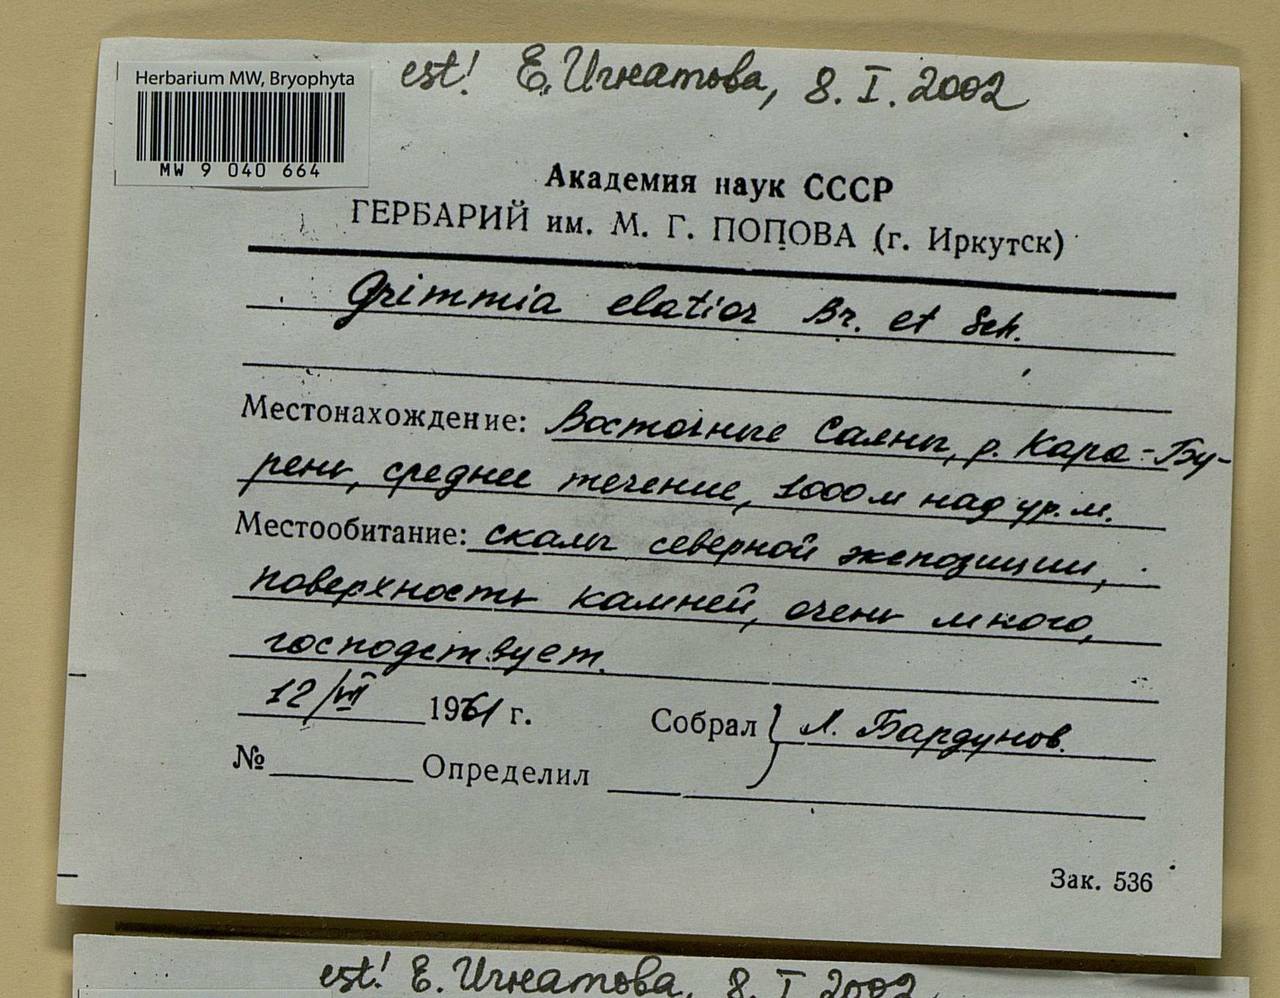 est! Е. Игнатова, 8. I. 2002
Herbarium MW, Bryophyta
MW 9 040 664
Академия наук СССР
ГЕРБАРИЙ им. М. Г. ПОПОВА (г. Иркутск)
Grimmia elatior Br. et Sch.
Местонахождение: Восточные Саяны, р. Кара-Бу-
рень, среднее течение, 1000 м над ур. м.
Местообитание: скалы северной экспозиции,
поверхность камней, очень много,
господствует.
12/VII 1961 г. Собрал Л. Бардунов.
№ Определил
Зак. 536
est! Е. Игнатова, 8. I 2002